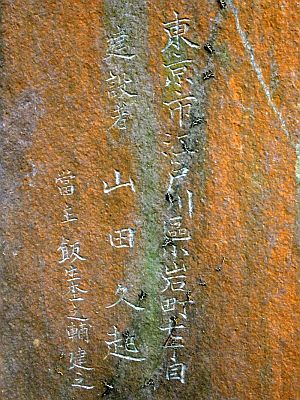 東京市江戸川區小岩町在自
建設者 山田久起
當主 飯生圭之輔建之